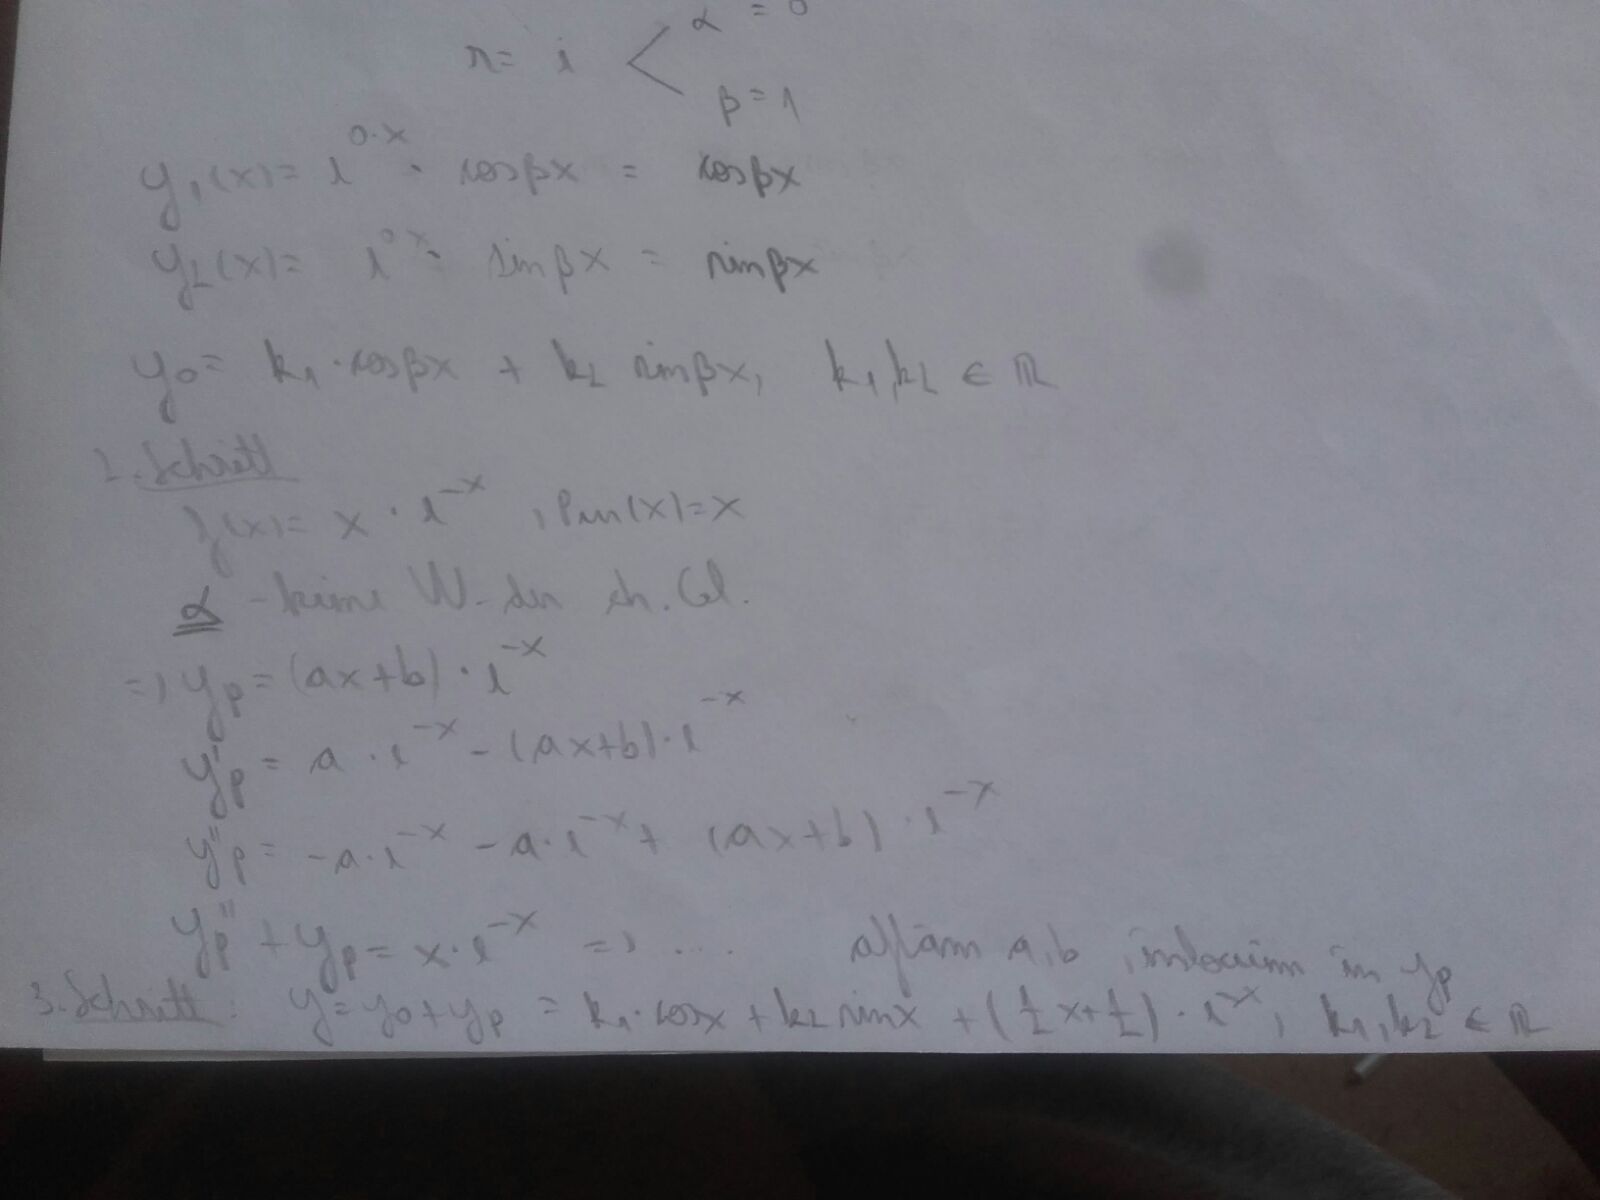 r = i < α = 0
β = 1
y₁(x) = e^{0·x} · cosβx = cosβx
y₂(x) = e^{0·x} · sinβx = sinβx
y₀ = k₁·cosβx + k₂ sinβx, k₁,k₂ ∈ ℝ
2. Schritt
f(x) = x · e^{-x} , Pm(x) = x
α - keine W. der ch. Gl.
=> yp = (ax+b) · e^{-x}
y'p = a · e^{-x} - (ax+b) · e^{-x}
y''p = -a·e^{-x} - a·e^{-x} + (ax+b) · e^{-x}
yp'' + yp = x·e^{-x} => .... aflăm a,b , înlocuim în yp
3. Schritt: y = y₀+yp = k₁·cosx + k₂ sinx + (½x+½)·e^{-x}, k₁,k₂ ∈ ℝ